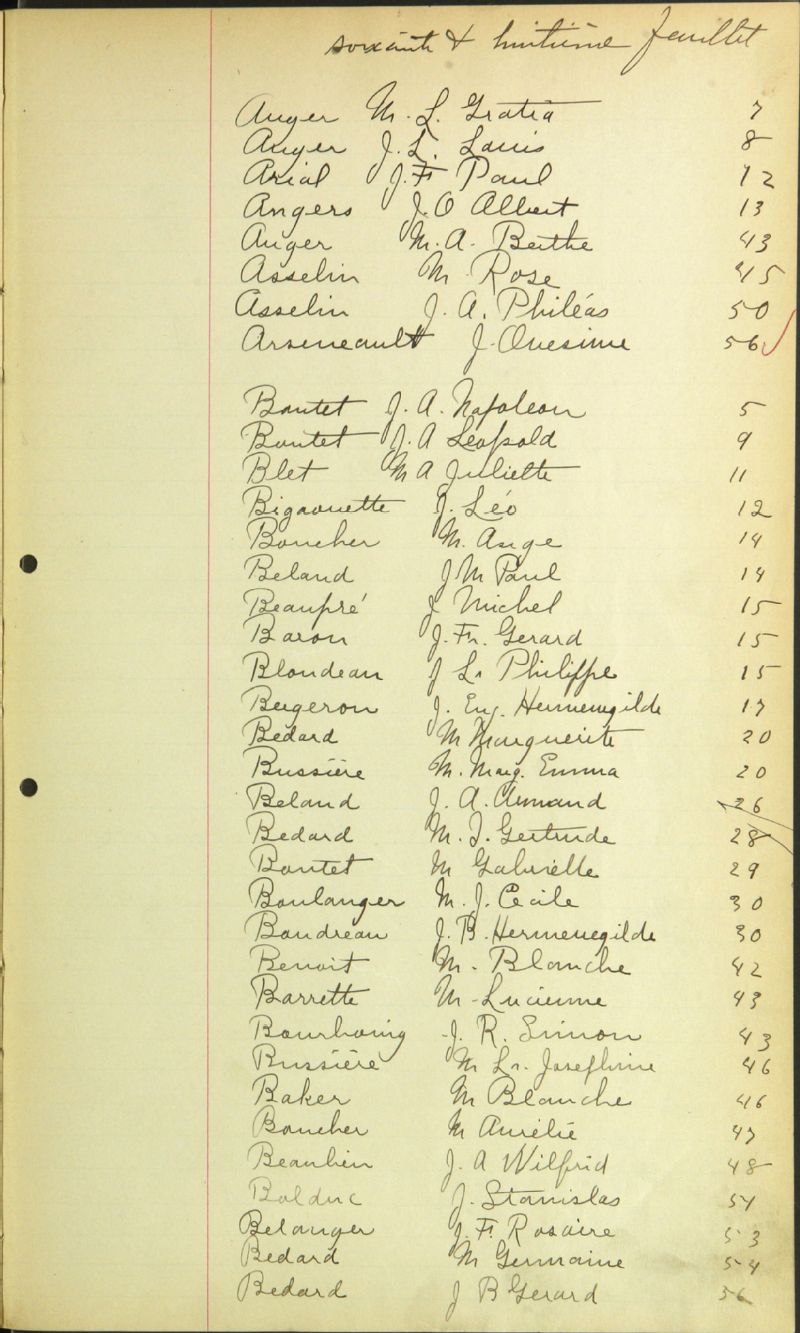 soixante & huitième feuillet
Auger M. L. Gratia 7
Auger J. L. Louis 8
Arial J. F. Paul 12
Angers J. O Albert 13
Auger M. A. Berthe 43
Asselin M Rose 45
Asselin J. A. Philéas 50
Arseneault J. Onesime 56
Boutet J. A. Napoleon 5
Boutet J. A Leopold 9
Blet M A Juliette 11
Bigaouette J. Léo 12
Boucher M. Ange 14
Beland J M Paul 14
Beaupré J Michel 15
Baron J. Fr. Gerard 15
Blondeau J Ls Philippe 15
Bergeron J. Eug. Hermenegilde 17
Bedard M Marguerite 20
Bussière M. Marg. Emma 20
Beland J. A. Armand 26
Bedard M. J. Gertrude 28
Boutet M Gabrielle 29
Boulanger M. J. Cecile 30
Boudreau J. B. Hermenegilde 30
Benoit M. Blanche 42
Barrette M. Lucienne 43
Bourboing J. R. Simon 43
Bussière M Ls. Josephine 46
Baker M Blanche 46
Boucher M Aurélie 47
Beaulieu J. A Wilfrid 48
Bolduc J. Stanislas 54
Belanger J. F. Rosaire 53
Bedard M Germaine 54
Bedard J B Gerard 56